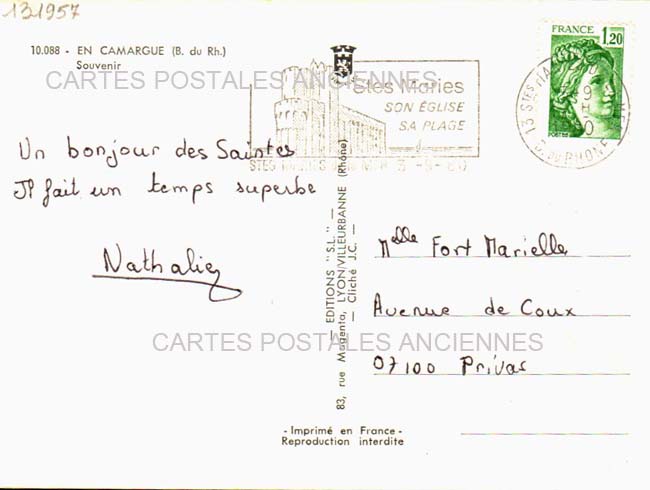 131957
10.088 - EN CAMARGUE (B. du Rh.)
Souvenir
CARTES POSTALES ANCIENNES
Stes Maries
SON ÉGLISE
SA PLAGE
FRANCE
1,20
POSTES
Un bonjour des Saintes
Il fait un temps superbe
Nathalie
— EDITIONS "S.L." —
83, rue Magenta, LYON/VILLEURBANNE (Rhône)
— Cliché J.C. —
Melle Fort Marielle
Avenue de Coux
07100 Privas
CARTES POSTALES ANCIENNES
- Imprimé en France -
Reproduction interdite